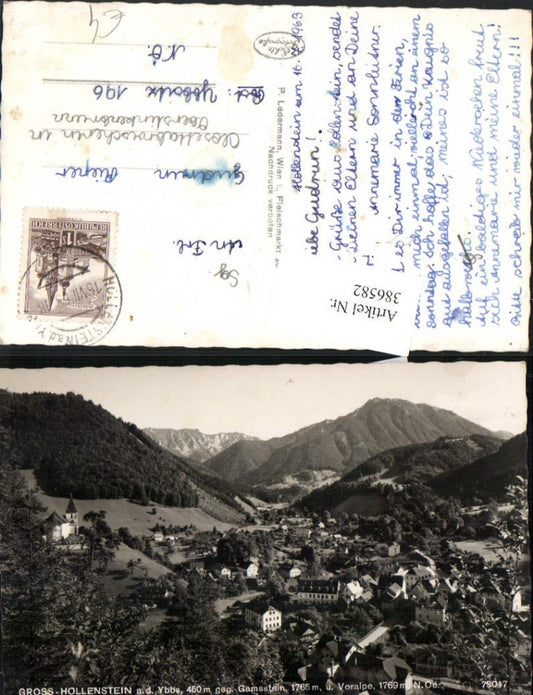 Hollenstein am 16. 1963
Liebe Gudrun!
Grüße aus Hollenstein, sendet
Deinen Eltern und an Deine
Annemarie Sonnleitner.
es Dir immer in den Ferien,
mich einmal, vielleicht an einem
Sonntag. Ich hoffe das Dein Zeugnis
gut ausgefallen ist, meines ist so
halbwegs.
Auf ein baldiges Wiedersehen freut
sich Annemarie und meine Eltern!
Bitte schreib mir wieder einmal!!!
P. Ledermann, Wien I., Fleischmarkt
Nachdruck verboten
Echte
REPUBLIK ÖSTERREICH
HOLLENSTEIN a.d. Y
An Frl.
Gudrun
Post: 196
N.Ö.
Artikel Nr.
386582
GROSS-HOLLENSTEIN a.d. Ybbs, 450 m geg. Gamsstein, 1765 m, u. Voralpe, 1769 m, N.Oe. 79017